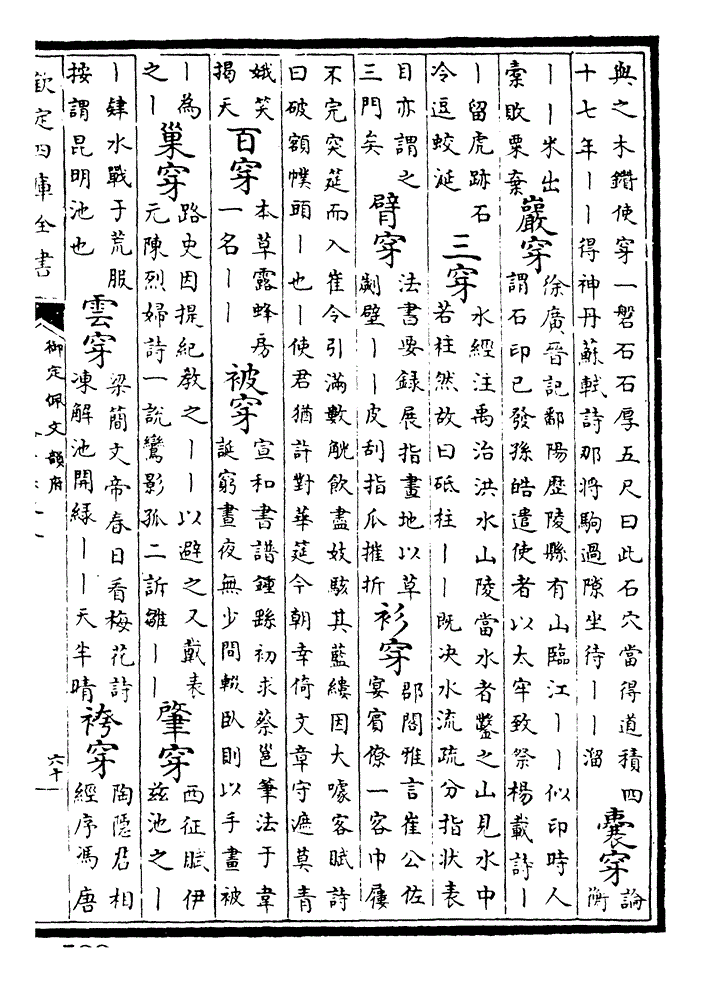 與之木鑽使穿一磐石石厚五尺曰此石穴當得道積四
十七年丨丨得神丹蘇軾詩那將駒過隙坐待丨丨溜
囊穿
論
衡
丨丨米出
橐敗粟棄
巖穿
徐廣晉記鄱陽歷陵縣有山臨江丨丨似印時人
謂石印已發孫皓遣使者以太牢致祭楊載詩丨
丨留虎跡石
冷逗蛟涎
三穿
水經注禹治洪水山陵當水者鑿之山見水中
若柱然故曰砥柱丨丨既决水流疏分指狀表
目亦謂之
三門矣
臂穿
法書要録展指畫地以草
劃壁丨丨皮刮指爪摧折
衫穿
郡閣雅言崔公佐
宴賓僚一客巾屨
不完突筵而入崔令引滿數觥飲盡妓駭其藍縷因大噱客賦詩
曰破額幞頭丨也丨使君猶許對華筵今朝幸倚文章守遮莫青
娥笑
揭天
百穿
本草露蜂房
一名丨丨
被穿
宣和書譜鍾繇初求蔡邕筆法于韋
誕窮晝夜無少間輟臥則以手畫被
丨為
之丨
巢穿
路史因提紀教之丨丨以避之又戴表
元陳烈婦詩一說鸞影孤二訴雛丨丨
肇穿
西征賦伊
兹池之丨
丨肄水戰于荒服
按謂昆明池也
雲穿
梁簡文帝春日看梅花詩
凍解池開緑丨丨天半晴
袴穿
陶隱居相
經序馮唐
欽定四庫全書
御定佩文韻府
六十一